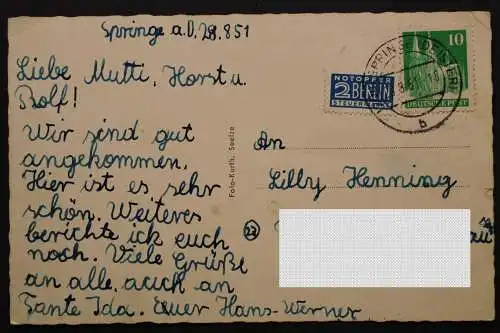 Springe a.D, 28.851
Liebe Mutti, Horst u.
Rolf!
Wir sind gut
angekommen.
Hier ist es sehr
schön. Weiteres
berichte ick euch
noch. Viele Grüße
an alle, auch an
Tante Ida. Euer Hans-Werner
Foto-Kurth, Seelze
NOTOPFER
2 BERLIN
STEUERMARKE
10
DEUTSCHE POST
SPRINGE (DEISTER)
b
An
Lilly Henning
22